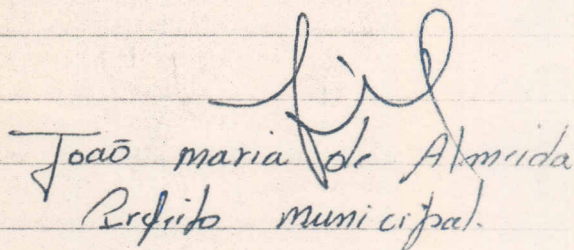 João maria de Almeida
Prefeito municipal.